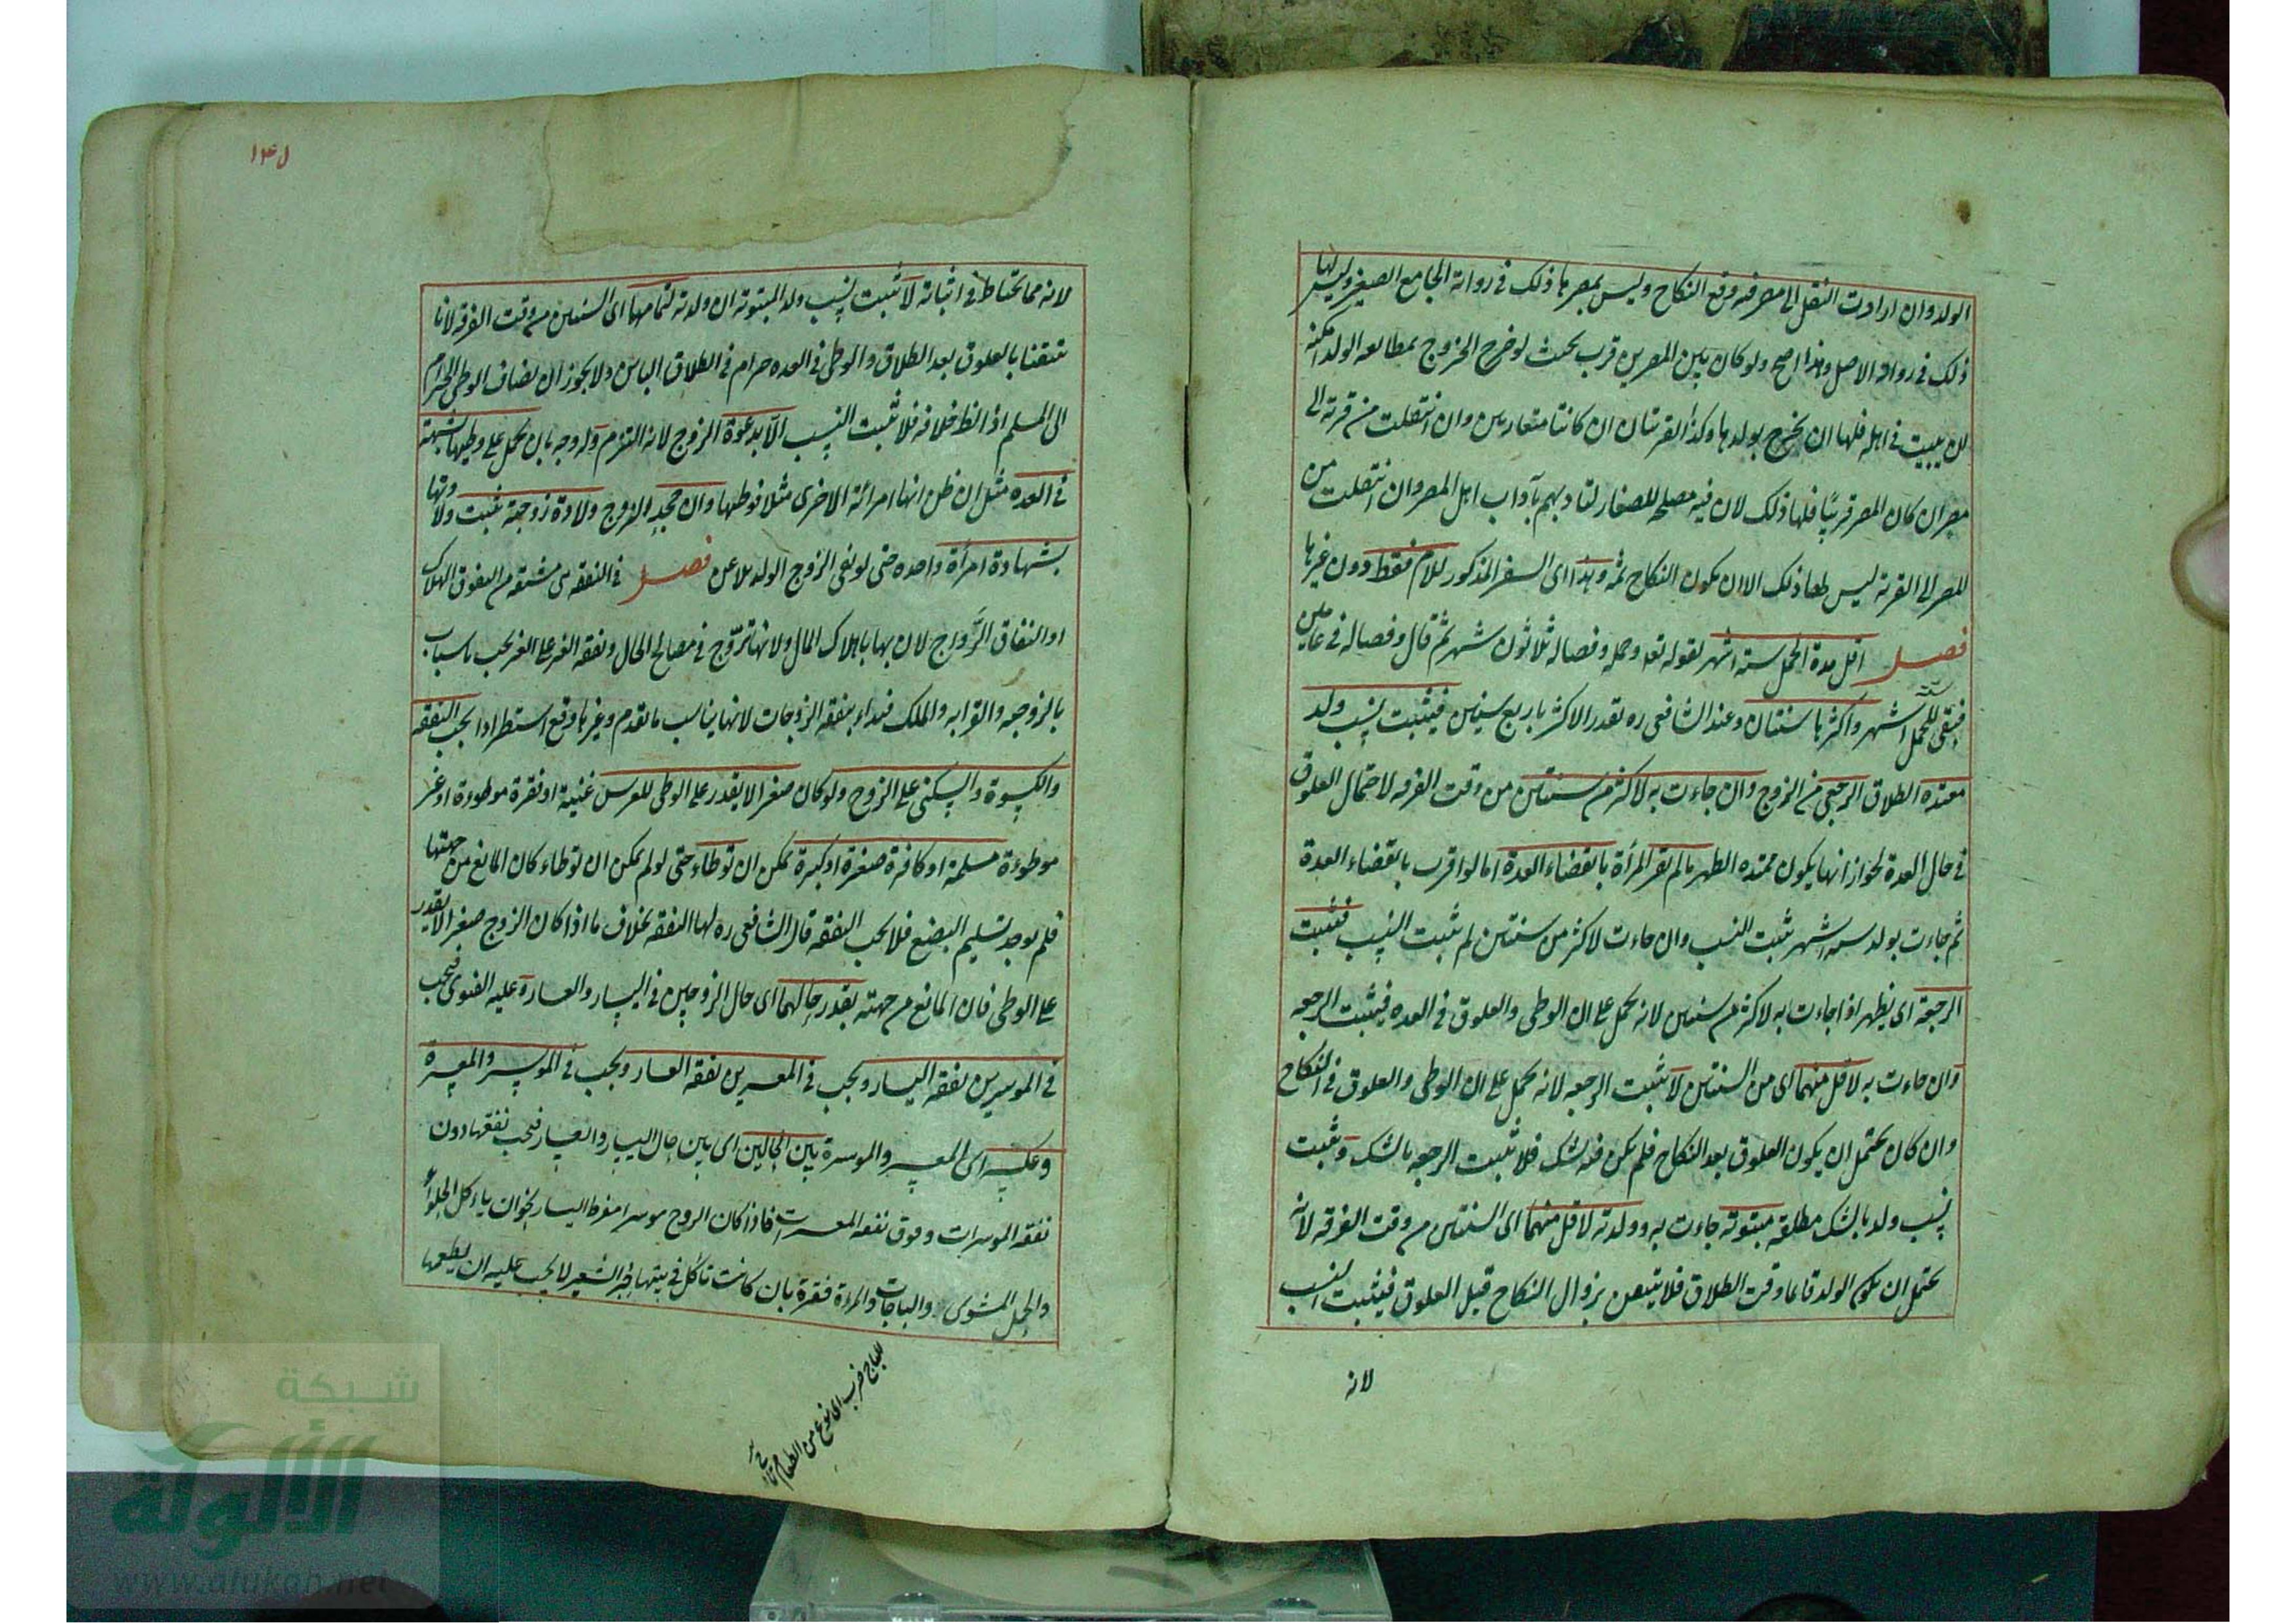 الولد وان ارادت النقل الى مصر فيه وقع النكاح وليس بمصرها ذلك في رواية الجامع الصغير وليس لها
ذلك في رواية الاصل وهذا اصح ولو كان بين المصرين قرب بحيث لو خرج الزوج بمطالعه الولد امكنه
ان يبيت في اهله فلها ان تخرج بولدها وكذا القريتان ان كانتا متقاربتين وان انتقلت من قرية الى
مصر ان كان المصر قريبًا فلها ذلك لان فيه مصلحه للصغار لتادبهم بآداب اهل المصر وان انتقلت من
المصر الى القرية ليس لها ذلك الا ان يكون النكاح ثمه وهذا اى السفر المذكور للام فقط دون غيرها
فصل اقل مدة الحمل ستة اشهر لقوله تع وحمله وفصاله ثلاثون شهرا ثم قال وفصاله في عامين
فبقى للحمل ستة اشهر واكثرها سنتان وعند الشافعى ره تقدر الاكثر باربع سنين فيثبت نسب ولد
معتده الطلاق الرجعى من الزوج وان جاءت به لاكثر من سنتين من وقت الفرقه لاحتمال العلوق
في حال العدة لجواز انها يكون ممتده الطهر ما لم تقر المرأة بانقضاء العدة اما لو اقرت بانقضاء العدة
ثم جاءت بولد ستة اشهر ثبت النسب وان جاءت لاكثر من سنتين لم تثبت النسب فتثبت
الرجعة اى يظهر اذا جاءت به لاكثر من سنتين لانه يحمل على ان الوطى والعلوق في العده فيثبت الرجعه
وان جاءت به لاقل منهما اى من السنتين لا تثبت الرجعه لانه يحمل على ان الوطى والعلوق في النكاح
وان كان يحتمل ان يكون العلوق بعد النكاح فلم يكن فيه شك فلا تثبت الرجعه بالشك وتثبت
نسب ولد بالشك مطلقه مبتوتة جاءت به وولدته لاقل منهما اى السنتين من وقت الفرقه لانه
يحتمل ان يكون الولد قائما وقت الطلاق فلا يتيقن بزوال النكاح قبل العلوق فيثبت النسب
لانه
١٤٥
لانه مما يحتاط في اثباته لا تثبت نسب ولد المبتوتة ان ولدته لتمامهما اى السنتين من وقت الفرقه لانا
تيقنا بالعلوق بعد الطلاق والوطى في العده حرام في الطلاق البائن ولا يجوز ان يضاف الوطى الحرام
الى المسلم اذ الظ خلافه فلا تثبت النسب الا بدعوة الزوج لانه التزم وله وجه بان يحمل على وطيها بشبهة
في العده مثل ان ظن انها امراته الاخرى مثلا فوطيها وان جحد الزوج ولادة زوجته تثبت ولادتها
بشهادة امرأة واحده حتى لو نفى الزوج الولد يلاعن فصل في النفقه هى مشتقه من النفوق الهلاك
او النفاق الرَّواج لان بها باهلاك المال ولانها تروّج في مصالح الحال ونفقه الغير على الغير تجب باسباب
بالزوجه والقرابه والملك فبداء بنفقه الزوجات لانها يناسب ما تقدم وغيرها وقع استطرادا تجب النفقه
والكسوة والسكنى على الزوج ولو كان صغيرا لا يقدر على الوطى للعرس غنية او فقيرة موطوءة او غير
موطوءة مسلمة او كافرة صغيرة او كبيرة يمكن ان توطاء حتى لو لم يمكن ان توطاء كان المانع من جهتها
فلم يوجد تسليم البضع فلا تجب النفقه قال الشافعى ره لها النفقه بخلاف ما اذا كان الزوج صغيرا لا يقدر
على الوطى فان المانع من جهته بقدر حالهما اى حال الزوجين في اليسار والعسار وعليه الفتوى فتجب
في الموسرين نفقه اليسار وتجب في المعسرين نفقه العسار وتجب في الموسر والمعسرة
وعكسه اى المعسر والموسرة بين الحالين اى بين حال اليسار والعسار فتجب نفقتها دون
نفقه الموسرات وفوق نفقه المعسرات فاذا كان الزوج موسرا مفرط اليسار نحو ان ياءكل الحلواء
والحمل المشوى والباجات والمراة فقيرة بان كانت تاكل في بيتها خبز الشعير لا يجب عليه ان يطعمها
الباج ضرب اى نوع من الطعام
شبكة
الألوكة
www.alukah.net